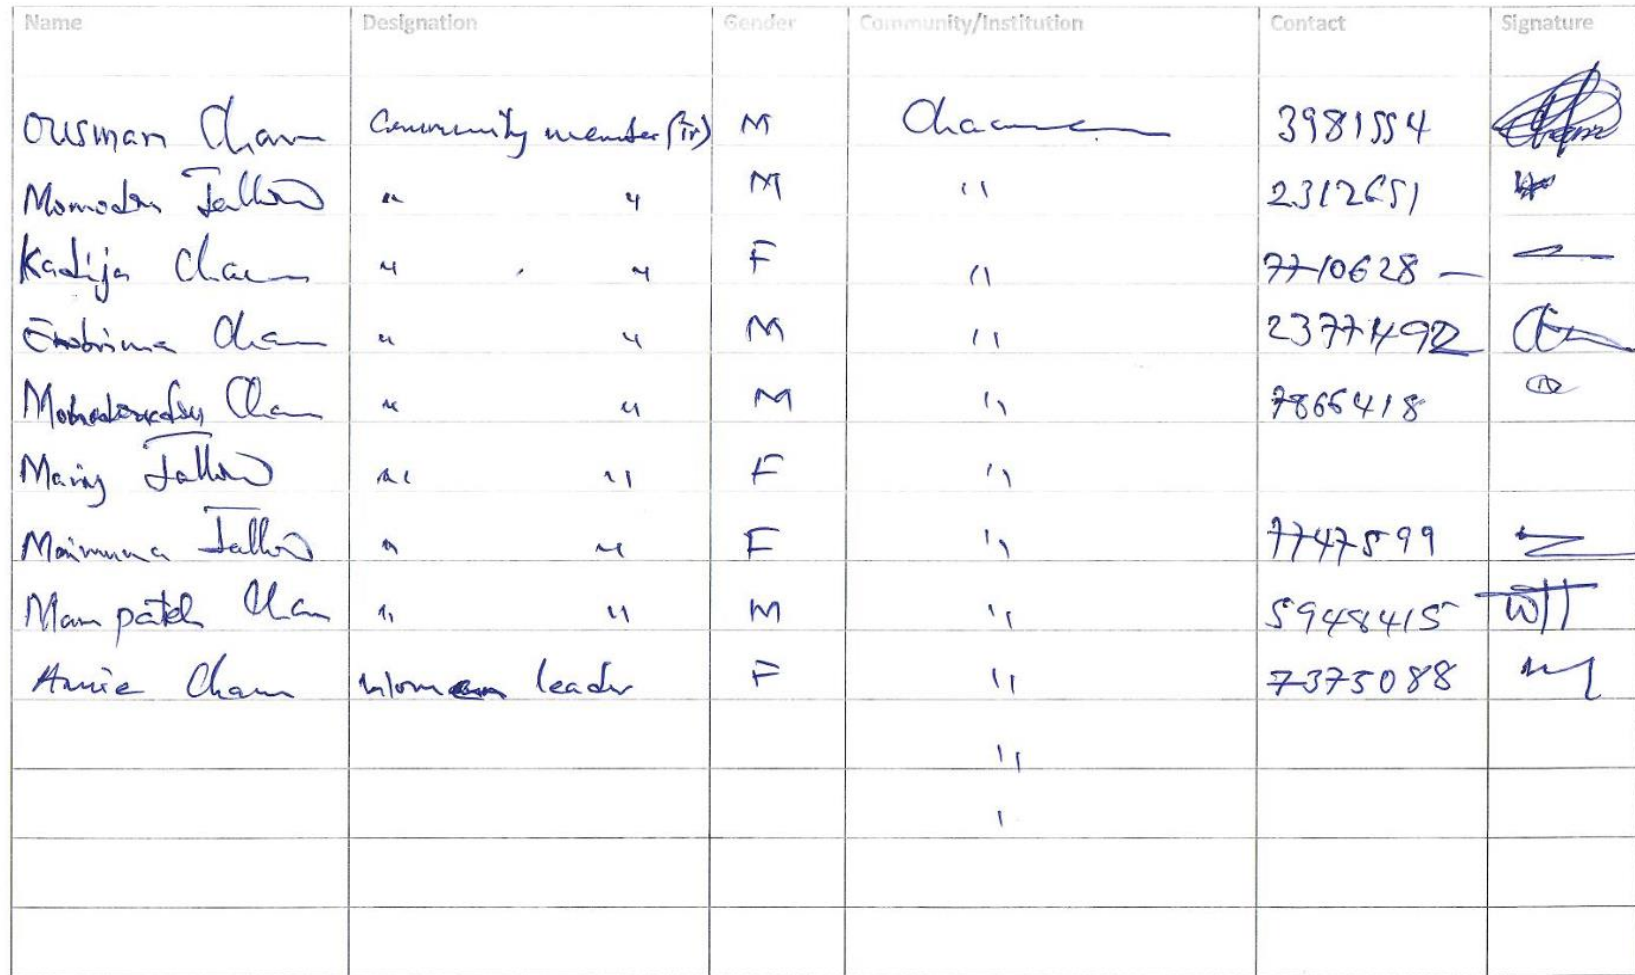 Name Designation Gender Community/Institution Contact Signature
Ousman Cham Community member M Chamen 3981554
Momodou Jallow " " M " 2312651
Kadija Cham " " F " 7710628
Ebrima Cham " " M " 2377492
Cham " " M " 7866418
Jallow " " F "
Maimuna Jallow " " F " 7747599
Mam patch Cham " " M " 5948415
Amie Cham Women leader F " 7375088
"